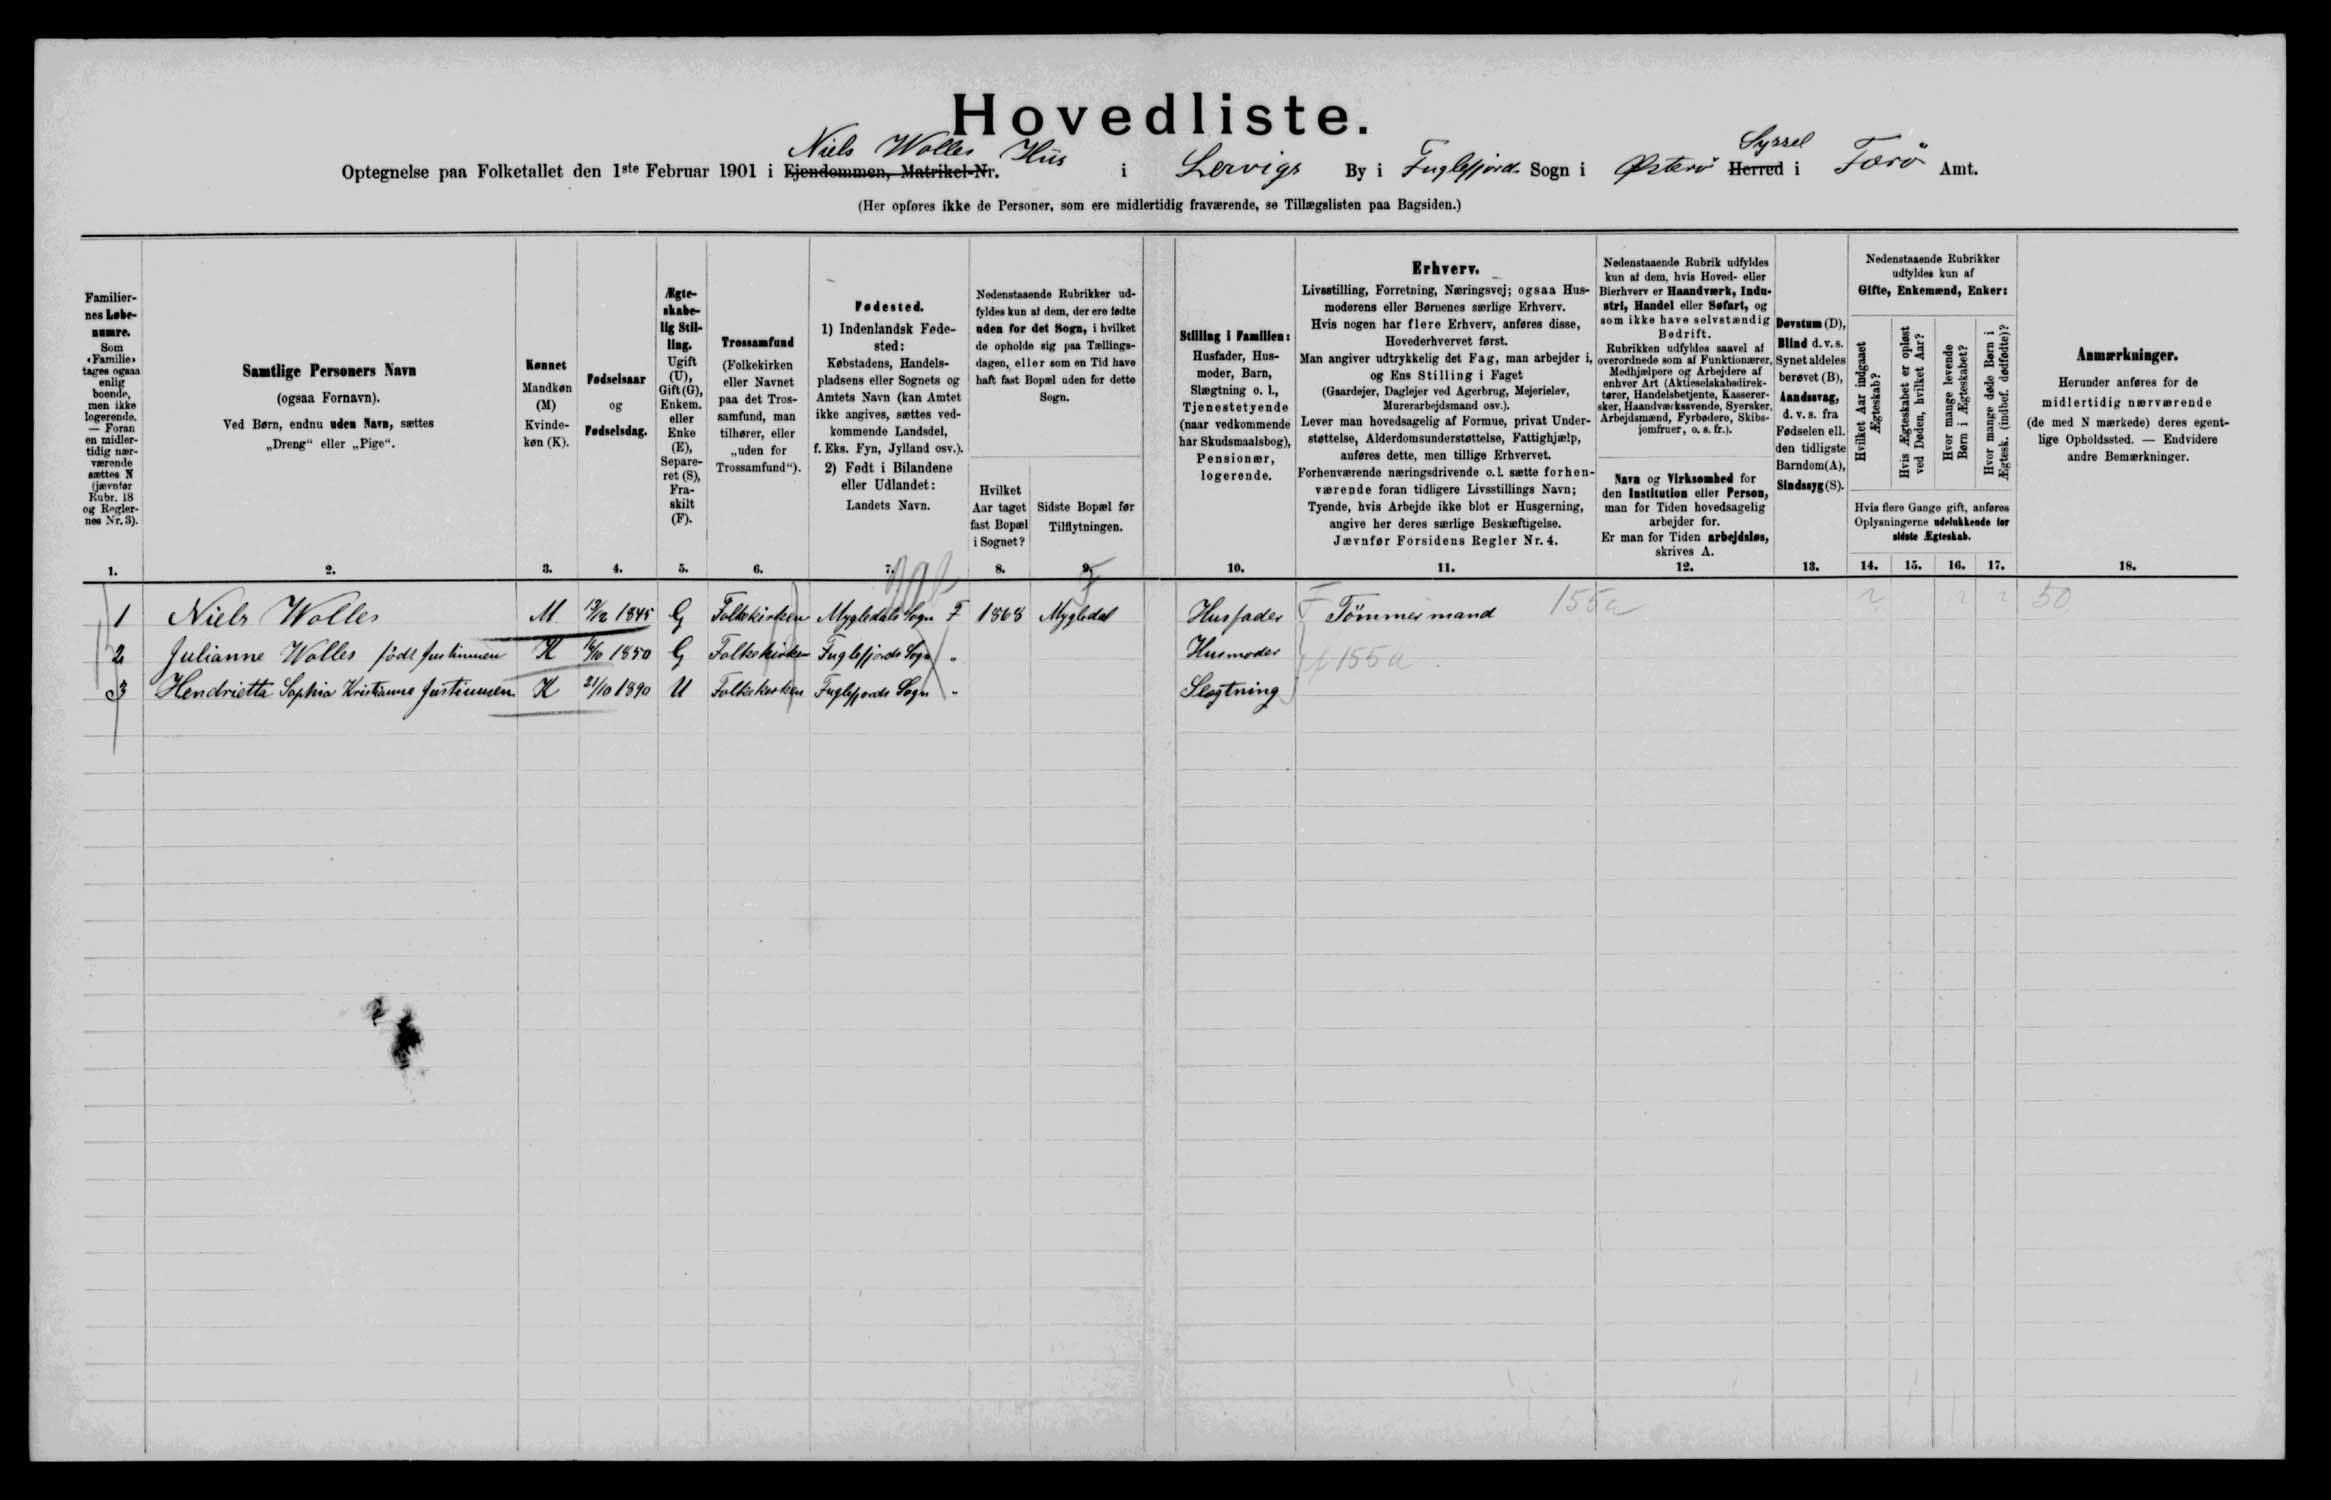 Hovedliste.
Niels Wolles Hus Syssel
Optegnelse paa Folketallet den 1ste Februar 1901 i Ejendommen, Matrikel-Nr. i Lervigs By i Fuglefjord Sogn i Østerö Herred i Færö Amt.
(Her opføres ikke de Personer, som ere midlertidig fraværende, se Tillægslisten paa Bagsiden.)
Familier-
nes Løbe-
numre.
Som
«Familie»
tages ogsaa
enlig
boende,
men ikke
logerende.
— Foran
en midler-
tidig nær-
værende
sættes N
(jævnfør
Rubr. 18
og Regler-
nes Nr. 3).
1.
Samtlige Personers Navn
(ogsaa Fornavn).
Ved Børn, endnu uden Navn, sættes
„Dreng“ eller „Pige“.
2.
Kønnet
Mandkøn
(M)
Kvinde-
køn (K).
3.
Fødselsaar
og
Fødselsdag.
4.
Ægte-
skabe-
lig Stil-
ling.
Ugift
(U),
Gift (G),
Enkem.
eller
Enke
(E),
Separe-
ret (S),
Fra-
skilt
(F).
5.
Trossamfund
(Folkekirken
eller Navnet
paa det Tros-
samfund, man
tilhører, eller
„uden for
Trossamfund“).
6.
Fødested.
1) Indenlandsk Føde-
sted:
Købstadens, Handels-
pladsens eller Sognets og
Amtets Navn (kan Amtet
ikke angives, sættes ved-
kommende Landsdel,
f. Eks. Fyn, Jylland osv.).
2) Født i Bilandene
eller Udlandet:
Landets Navn.
7.
Nedenstaaende Rubrikker ud-
fyldes kun af dem, der ere fødte
uden for det Sogn, i hvilket
de opholde sig paa Tællings-
dagen, eller som en Tid have
haft fast Bopæl uden for dette
Sogn.
Hvilket
Aar taget
fast Bopæl
i Sognet?
8.
Sidste Bopæl før
Tilflytningen.
9.
Stilling i Familien:
Husfader, Hus-
moder, Barn,
Slægtning o. l.,
Tjenestetyende
(naar vedkommende
har Skudsmaalsbog),
Pensionær,
logerende.
10.
Erhverv.
Livsstilling, Forretning, Næringsvej; ogsaa Hus-
moderens eller Børnenes særlige Erhverv.
Hvis nogen har flere Erhverv, anføres disse,
Hovederhvervet først.
Man angiver udtrykkelig det Fag, man arbejder i,
og Ens Stilling i Faget
(Gaardejer, Daglejer ved Agerbrug, Mejerielev,
Murerarbejdsmand osv.).
Lever man hovedsagelig af Formue, privat Under-
støttelse, Alderdomsunderstøttelse, Fattighjælp,
anføres dette, men tillige Erhvervet.
Forhenværende næringsdrivende o. l. sætte forhen-
værende foran tidligere Livsstillings Navn;
Tyende, hvis Arbejde ikke blot er Husgerning,
angive her deres særlige Beskæftigelse.
Jævnfør Forsidens Regler Nr. 4.
11.
Nedenstaaende Rubrik udfyldes
kun af dem, hvis Hoved- eller
Bierhverv er Haandværk, Indu-
stri, Handel eller Søfart, og
som ikke have selvstændig
Bedrift.
Rubrikken udfyldes saavel af
overordnede som af Funktionærer,
Medhjælpere og Arbejdere af
enhver Art (Aktieselskabsdirek-
tører, Handelsbetjente, Kasserer-
sker, Haandværkssvende, Syersker,
Arbejdsmænd, Fyrbødere, Skibs-
jomfruer, o. s. fr.).
Navn og Virksomhed for
den Institution eller Person,
man for Tiden hovedsagelig
arbejder for.
Er man for Tiden arbejdsløs,
skrives A.
12.
Døvstum (D),
Blind d. v. s.
Synet aldeles
berøvet (B),
Aandssvag,
d. v. s. fra
Fødselen ell.
den tidligste
Barndom (A),
Sindssyg (S).
13.
Nedenstaaende Rubrikker
udfyldes kun af
Gifte, Enkemænd, Enker:
Hvilket Aar indgaaet
Ægteskab?
Hvis Ægteskabet er opløst
ved Døden, hvilket Aar?
Hvor mange levende
Børn i Ægteskabet?
Hvor mange døde Børn i
Ægtesk. (indbef. dødfødte)?
Hvis flere Gange gift, anføres
Oplysningerne udelukkende for
sidste Ægteskab.
14. 15. 16. 17.
Anmærkninger.
Herunder anføres for de
midlertidig nærværende
(de med N mærkede) deres egent-
lige Opholdssted. — Endvidere
andre Bemærkninger.
18.
1 Niels Wolles M 1845 G Folkekirken Mygledals Sogn F 1868 Mygledal Husfader F Tömmermand 155a ? ? ? 50
2 Julianne Wolles födt Justinussen K 1850 G Folkekirken Fuglefjords Sogn " Husmoder 155a
3 Hendrietta Sophia Kristianne Justinussen K 21/10 1890 U Folkekirken Fuglefjords Sogn " Slægtning